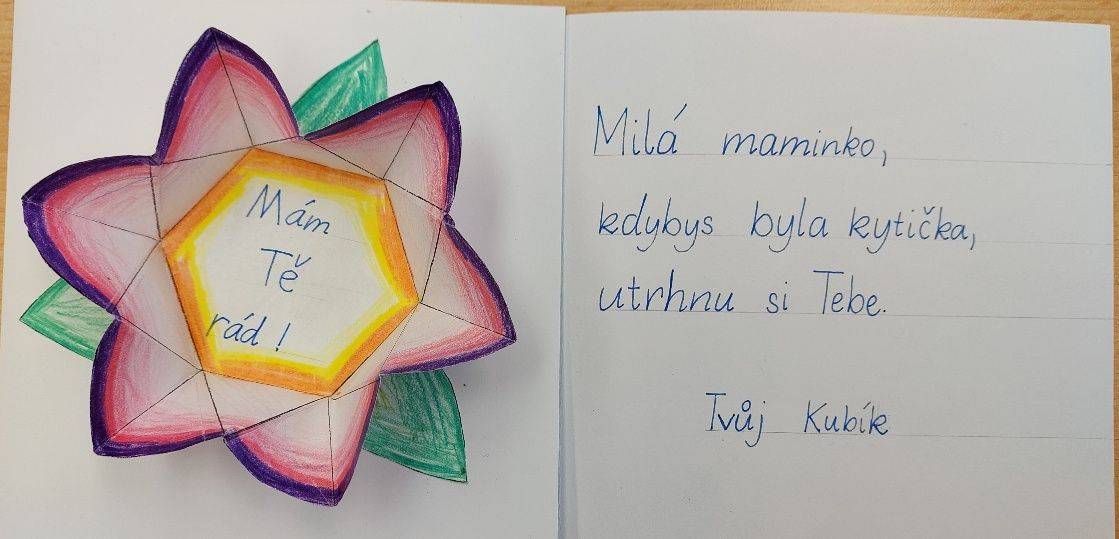 Mám
Tě
rád!
Milá maminko,
kdybys byla kytička,
utrhnu si Tebe.
Tvůj Kubík